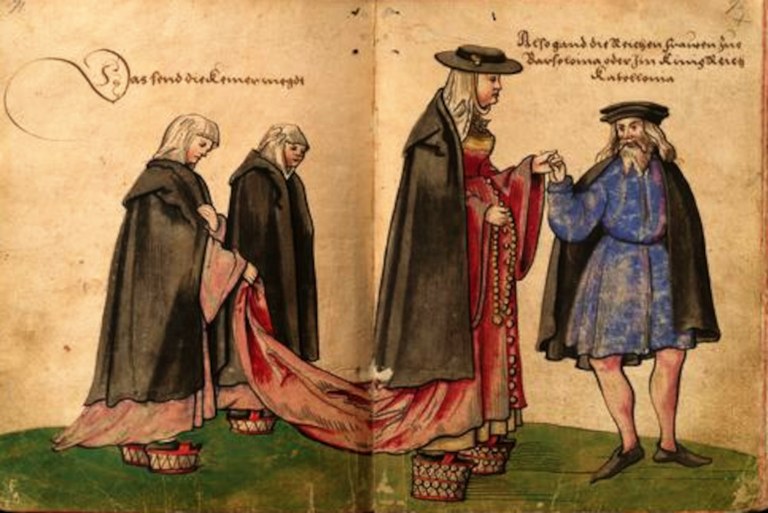 Das send die Kemer megdt
Also gand die Reichen frawen zue
Barselonia oder Jm Künig Reich
Katellonia